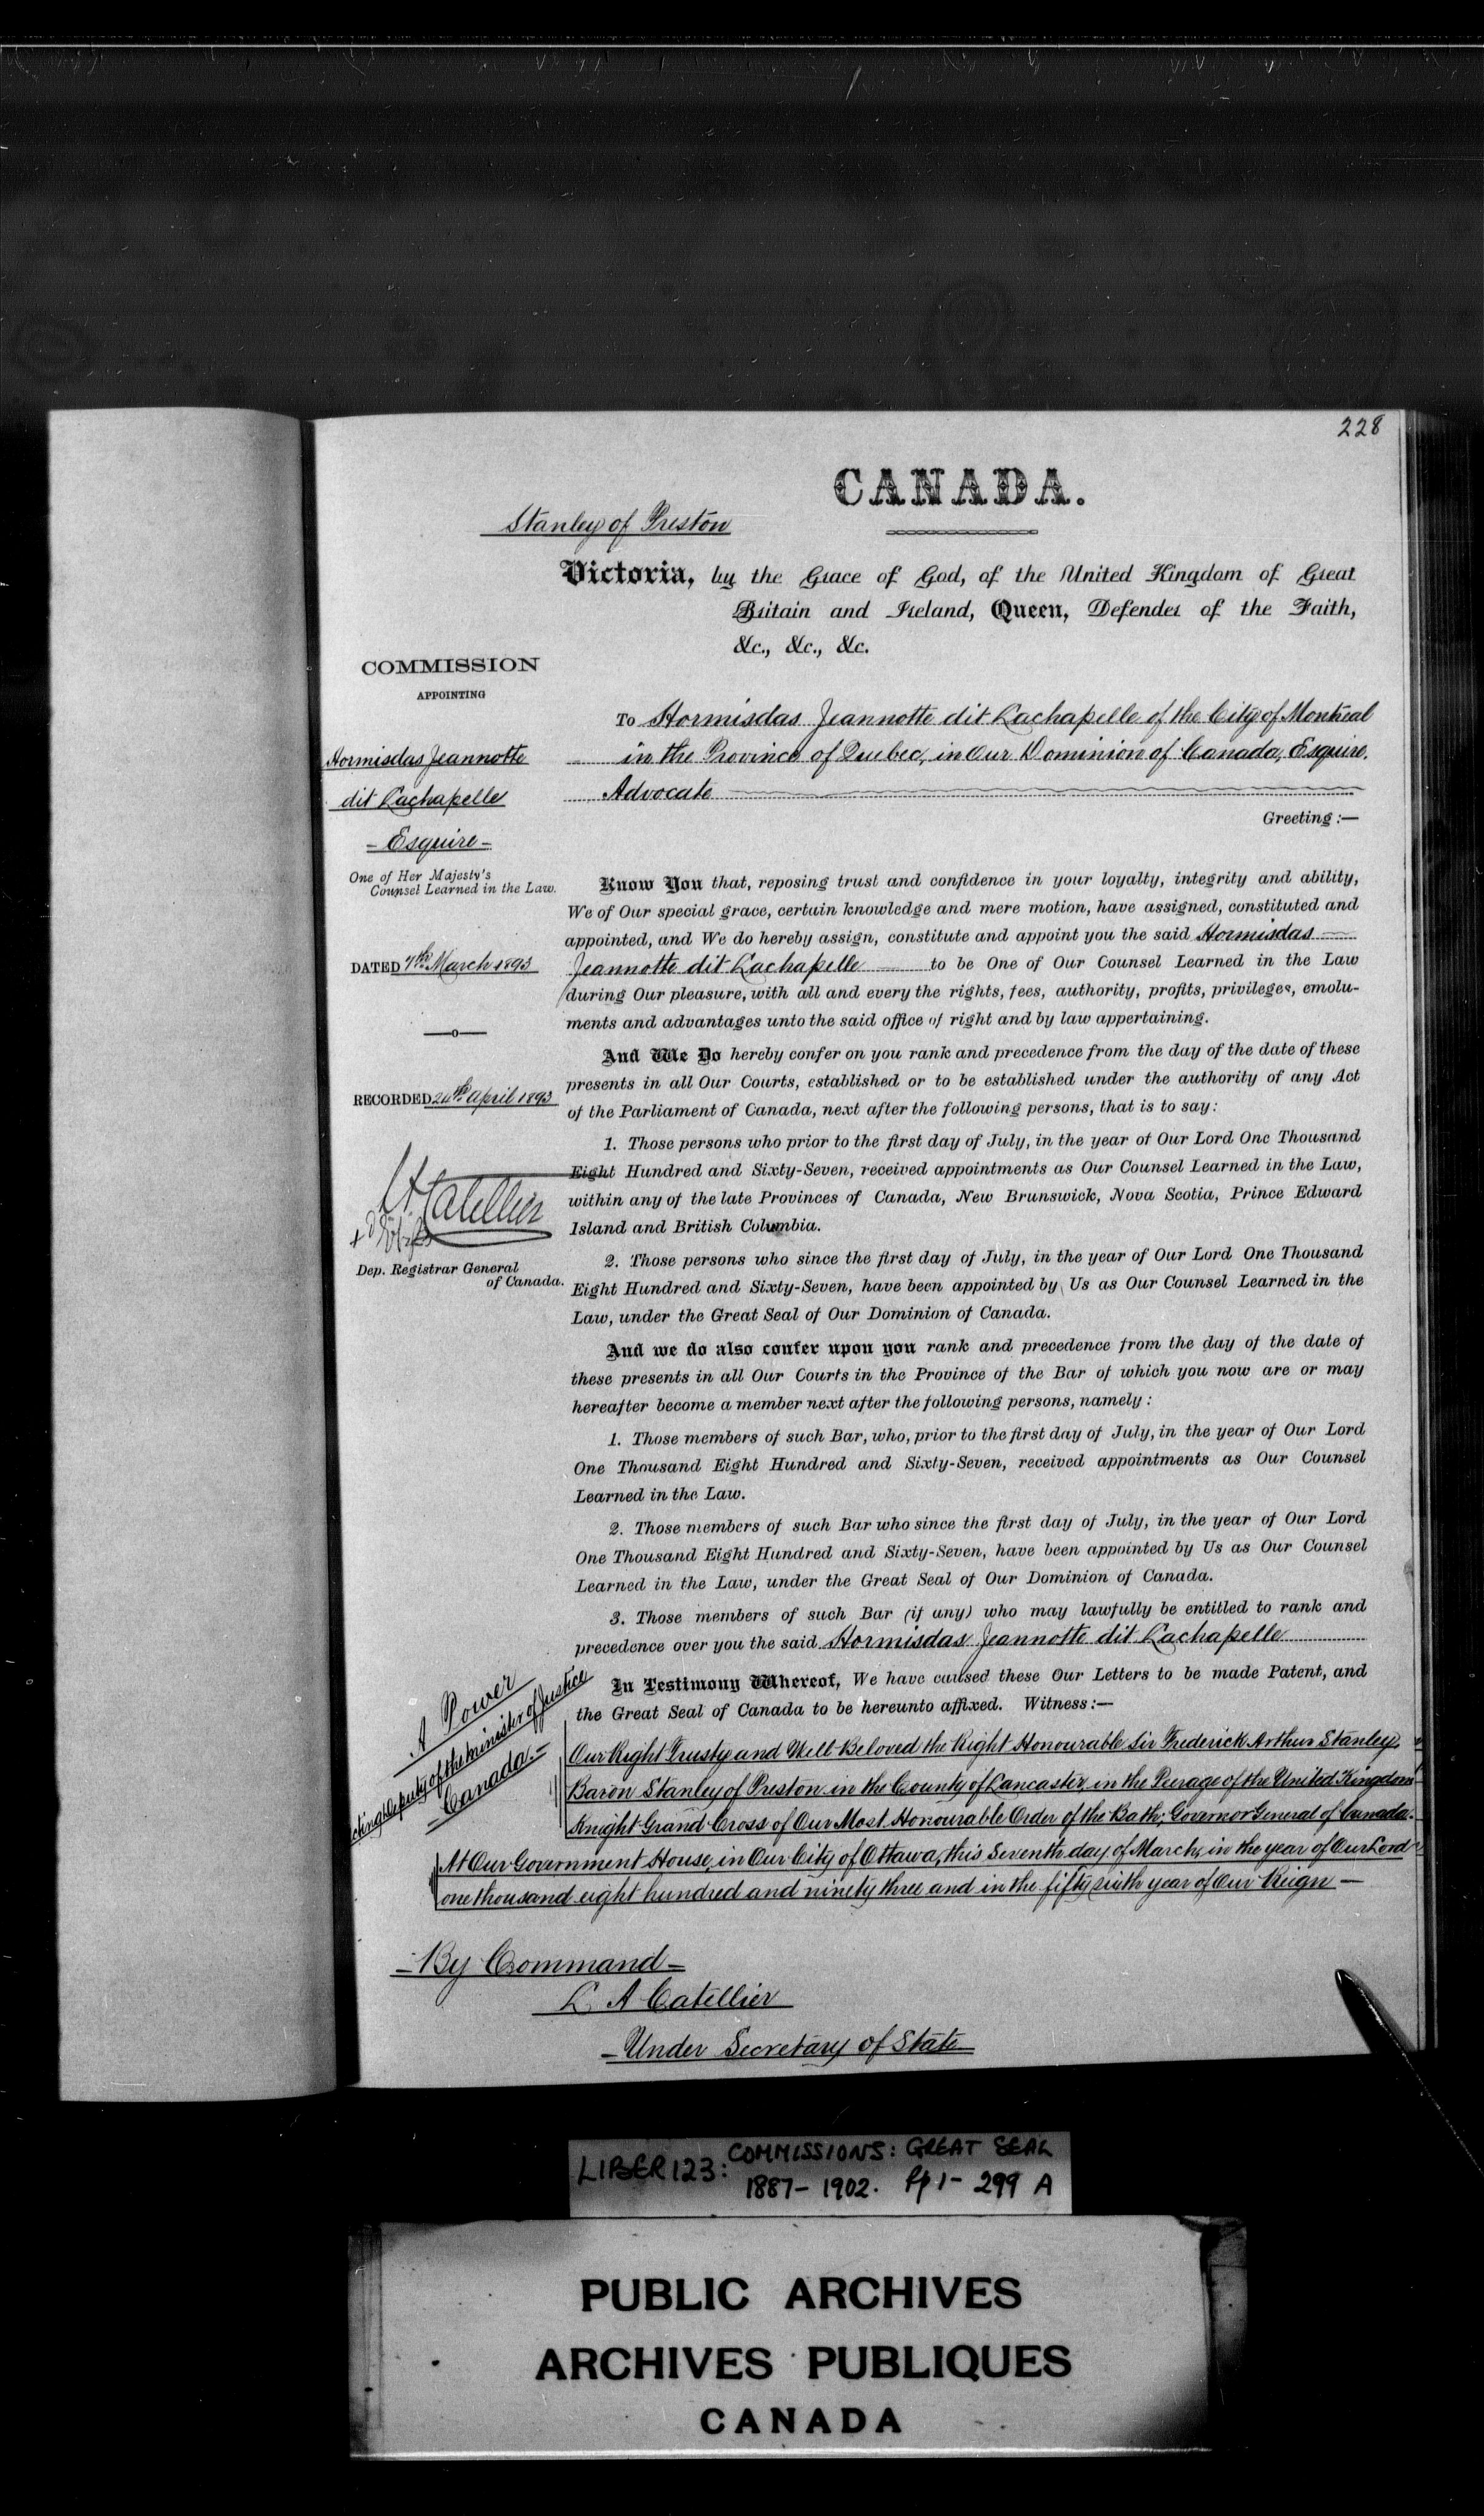 228
CANADA.
Stanley of Preston
Victoria, by the Grace of God, of the United Kingdom of Great
Britain and Ireland, Queen, Defender of the Faith,
&c., &c., &c.
COMMISSION
APPOINTING
Hormisdas Jeannotte
dit Lachapelle
- Esquire -
One of Her Majesty's
Counsel Learned in the Law.
DATED 7th March 1893
RECORDED 24th April 1893
L.A. Catellier
Dep. Registrar General
of Canada.
To Hormisdas Jeannotte dit Lachapelle of the City of Montreal
in the Province of Quebec, in Our Dominion of Canada, Esquire.
Advocate
Greeting:—
Know You that, reposing trust and confidence in your loyalty, integrity and ability,
We of Our special grace, certain knowledge and mere motion, have assigned, constituted and
appointed, and We do hereby assign, constitute and appoint you the said Hormisdas
Jeannotte dit Lachapelle to be One of Our Counsel Learned in the Law
during Our pleasure, with all and every the rights, fees, authority, profits, privileges, emolu-
ments and advantages unto the said office of right and by law appertaining.
And We Do hereby confer on you rank and precedence from the day of the date of these
presents in all Our Courts, established or to be established under the authority of any Act
of the Parliament of Canada, next after the following persons, that is to say:
1. Those persons who prior to the first day of July, in the year of Our Lord One Thousand
Eight Hundred and Sixty-Seven, received appointments as Our Counsel Learned in the Law,
within any of the late Provinces of Canada, New Brunswick, Nova Scotia, Prince Edward
Island and British Columbia.
2. Those persons who since the first day of July, in the year of Our Lord One Thousand
Eight Hundred and Sixty-Seven, have been appointed by Us as Our Counsel Learned in the
Law, under the Great Seal of Our Dominion of Canada.
And we do also confer upon you rank and precedence from the day of the date of
these presents in all Our Courts in the Province of the Bar of which you now are or may
hereafter become a member next after the following persons, namely:
1. Those members of such Bar, who, prior to the first day of July, in the year of Our Lord
One Thousand Eight Hundred and Sixty-Seven, received appointments as Our Counsel
Learned in the Law.
2. Those members of such Bar who since the first day of July, in the year of Our Lord
One Thousand Eight Hundred and Sixty-Seven, have been appointed by Us as Our Counsel
Learned in the Law, under the Great Seal of Our Dominion of Canada.
3. Those members of such Bar (if any) who may lawfully be entitled to rank and
precedence over you the said Hormisdas Jeannotte dit Lachapelle
In Testimony Whereof, We have caused these Our Letters to be made Patent, and
the Great Seal of Canada to be hereunto affixed. Witness:—
A Power
cting Deputy of the Minister of Justice
Canada.-
Our Right Trusty and Well-Beloved the Right Honourable Sir Frederick Arthur Stanley,
Baron Stanley of Preston in the County of Lancaster, in the Peerage of the United Kingdom
Knight Grand Cross of Our Most Honourable Order of the Bath; Governor General of Canada.
At Our Government House, in Our City of Ottawa, this Seventh day of March, in the year of Our Lord
one thousand eight hundred and ninety three and in the fifty sixth year of Our Reign —
- By Command -
L A Catellier
- Under Secretary of State
LIBER 123: COMMISSIONS: GREAT SEAL
1887- 1902. Pp 1- 299 A
PUBLIC ARCHIVES
ARCHIVES PUBLIQUES
CANADA